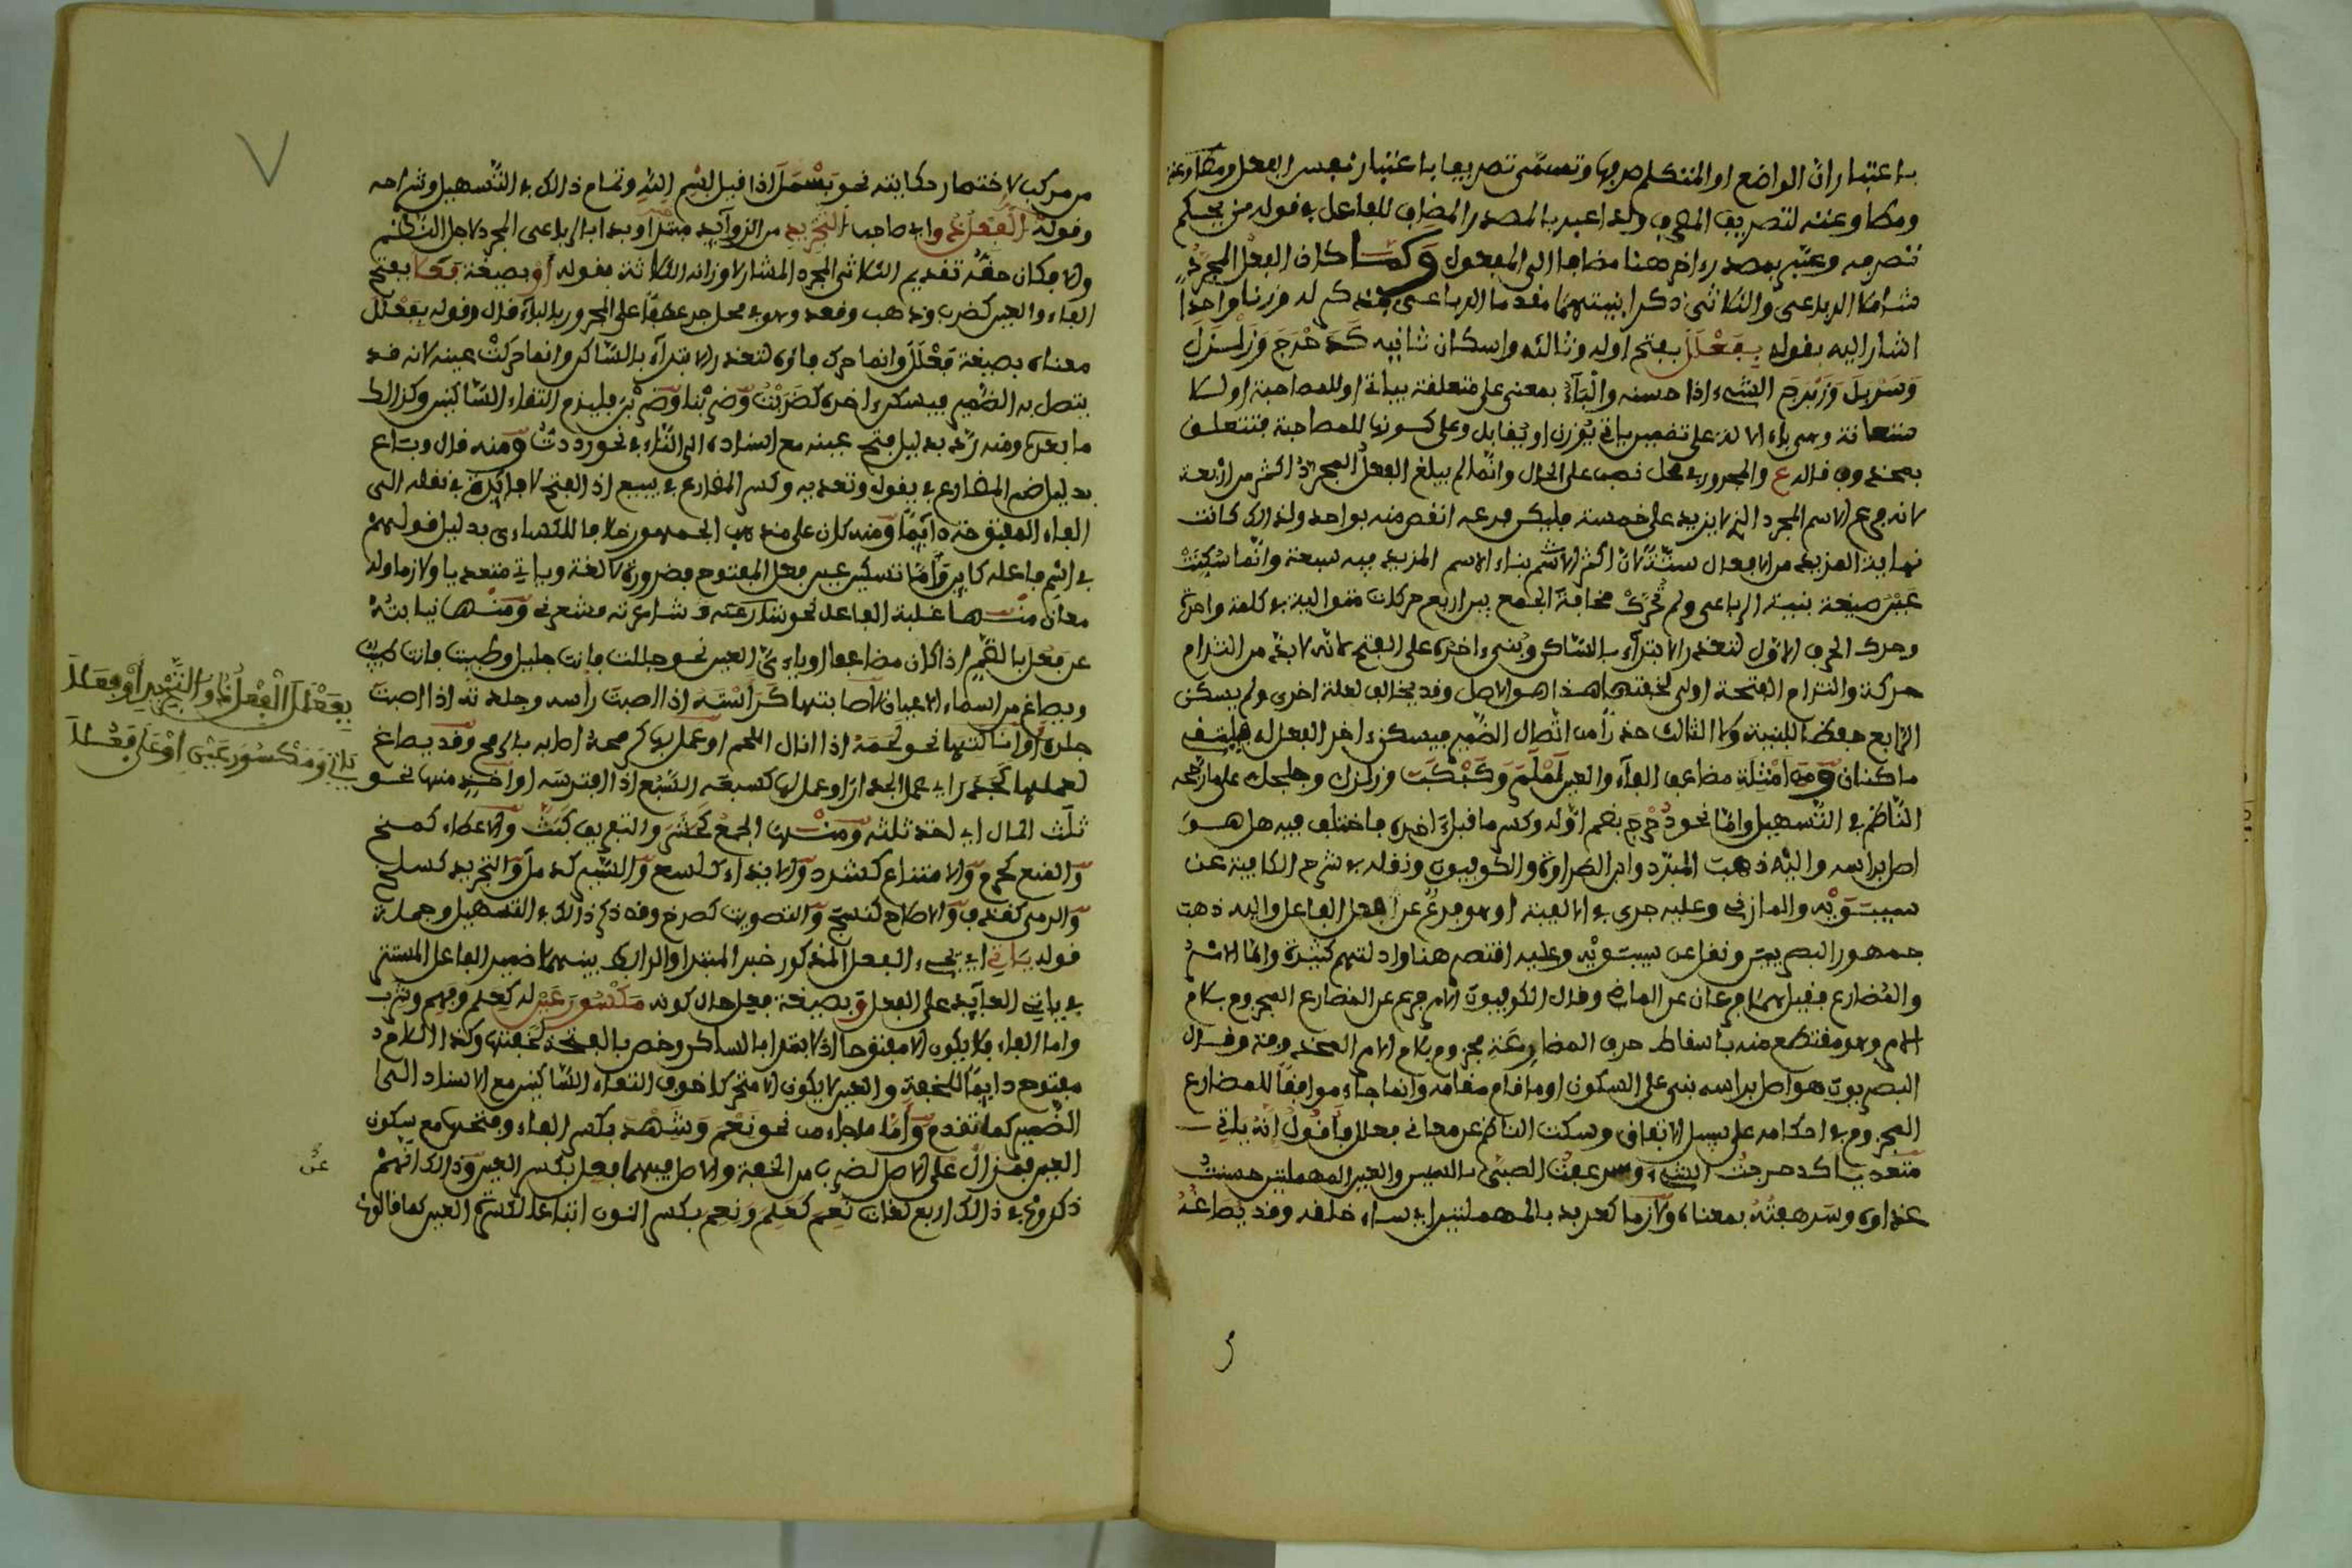 باعتبار ان الواضع او المتكلم صرفها وتسمى تصريفا باعتبار نفس الفعل ومطاوعته
ومطاوعته لتصريف المصرف ولذا عبر بالمصدر المضاف للفاعل في قوله من يحكم
تصرفه وعبر بمصدر اخر هنا مضافا الى المفعول وَكما كان الفعل المجرد
الرباعي والثلاثي ذكر ابنيتهما مقدما الرباعي فذكر له وزنا واحدا
اشار اليه بقوله بِفَعْلَلَ بفتح اوله وثالثه واسكان ثانيه كَدَحْرَجَ وَزَلْزَلَ
وَسَرْبَلَ وَزَبْرَجَ الشيء اذا حسنه والباء بمعنى على متعلقة بياتي او للمصاحبة او للا
ستعانة وهي باء الالة على تضمين ياتي يُوزن او يُقابل وعلى كونها للمصاحبة فتتعلق
بمحذوف قاله ع والمجرور في محل نصب على الحال وانما لم يبلغ الفعل المجرد اكثر من اربعة
لانه فرع الاسم المجرد الذي لا يزيد على خمسة فليكن فرعه انقص منه بواحد ولذلك كانت
نهاية المزيد من الافعال ستة لان اكثر الاسم بناء الاسم المزيد فيه سبعة وانما سُكِنَتْ
عَيْن صيغة بنية الرباعي ولم تُحَرَّك مخافة الجمع بين اربع حركات متوالية في كلمة واحدة
وحرك الحرف الاول لتعذر الابتداء بالساكن وبُني اخره على الفتح لانه لا بد من التزام
حركة والتزام الفتحة اولى لخفتها هذا هو الاصل وقد يخالف لعلة اخرى ولم يسكن
الرابع حفظا للبنية ولا الثالث حذرا من اتصال الضمير فيسكن اخر الفعل له فيلتقي
ساكنان وَمن امثلة مضاعف الفاء والعين لَمْلَمَ وَكَبْكَبَ وزلزل وجلجل على ما رجحه
الناظم في التسهيل واما نحو دُحْرِجَ بضم اوله وكسر ما قبل اخره فاختلف فيه هل هو
اصل براسه واليه ذهب المبرد وابن الطراوة والكوفيون ونقله في شرح الكافية عن
سيبَوَيْه والمازني وعليه جرى في الالفية او هو فرعٌ عن فعل الفاعل واليه ذهب
جمهور البصريين ونقل عن سيبويه وعليه اقتصر هنا وادلتهم كثيرة واما الامر
والمضارع فقيل هما فرعان عن الماضي وقال الكوفيون الامر فرع عن المضارع المجزوم بلام
الامر وهو مقتطع منه باسقاط حرف المضارعة مجزوم بلام الامر المحذوفة وقال
البصريون هو اصل براسه بني على السكون او ما قام مقامه وانما جاء موافقا للمضارع
المجزوم في احكامه على سبيل الاتفاق وسكت الناظم عن معاني فعلل فأقول انه ياتي
متعديا كدحرجت الشيء وسرعفت الصبي بالسين والعين المهملتين حسنت
غذاءه وسَرهفتُه بمعناه ولازما كعربد بالمهملتين اي ساء خلقه وقد يُصَاغُ
من مركب لاختصار حكايته نحو بَسْمَلَ اذا قيل بسم الله وتمام ذلك في التسهيل وشراحه
وقوله الْفِعْلُ ذُو اي صاحب التَّجْرِيدِ من الزوايد مبتدأ وبدا بالرباعي المجرد لاجل النظم
والا فكان حقه تقديم الثلاثي المجرد المشار لاوزانه الثلاثة بقوله أوْ بصيغة فَعُلا بفتح
الفاء والعين كضرب وذهب وقعد وهو في محل جر عطفا على المجرور بالباء قال وقوله بِفَعْلَلَ
معناه بصيغة فَعْلَلَ وانما حرك فاؤه لتعذر الابتداء بالساكن وانما حركت عينه لانه قد
يتصل به الضمير فيسكن اخره كضَرَبْتُ وَضربْنا وَضربْنَ فليزم التقاء الساكنين وكذلك
ما بعدها ومنه رَدَّ بدليل فتح عينه مع اسناده الى التاء في نحو رددتُ وَمنه قال وباع
بدليل ضم المضارع في يقول وتعديه وكسر المضارع في يبيع اذ الفتح لا فائدة في نقله الى
الفاء المفتوحة دائما وَمنه كان على مذهب الجمهور خلافا للكساءي بدليل قولهم
في اسم فاعله كاين وأما تسكين عين فعل المفتوح فضرورة لا لغة وياتي متعديا ولازما وله
معان منها غلبة الفاعل نحو شارعته وشاعرته فشعرني وَمنها نيابته
عن فَعُل بالضم اذا كان مضاعفا او ياءي العين نحو جللت فانت جليل وطبت فانت طيب
ويصاغ من اسماء الاعيان لاصابتها كَرَأَسَه اذا اصبت راسه وجلده اذا اصبت
جلده اوانالتها نحو لَحَمَهُ اذا انال اللحم او عمل بها كرمحه اصابه بالرمح وَقد يصاغ
لعملها كَجَدَرَ اي عمل الجدار او عمل لها كسبعه السَّبُع اذا افترسه او اخذ منها نحو
ثَلَث المال اي اخذ ثلثه وَمنها الجمعُ كحشر والتفريق كَبَثَّ والاعطاء كمنح
والمنع كحرم والامتناع كشرد والايذاء كلسع والسير كذمل والتجريد كسلخ
والرمي كقذف والاصلاح كنسج والتصويت كصرخ وقد ذكر ذلك في التسهيل وجملة
قوله يَاتِي اي يجيء الفعل المذكور خبر المبتدا والرابط بينهما ضمير الفاعل المستتر
في ياتي العائد على الفعل وَ بصيغة فعل حال كونه مَكْسُورَ عَيْن له كعلم وفهم وشرب
واما الفاء فلا يكون الا مفتوحا اذ لا يبتدا بالساكن وخص بالفتحة لخفتها وكذا اللام
مفتوح دايما للخفة والعين لا يكون الا متحركا خوف التقاء الساكنين مع الاسناد الى
الضمير كما تقدم وأمّا ما جاء من نحو نَعْمَ وَشَهْدَ بكسر الفاء وفتحها مع سكون
العين فمزال على الاصل لضرب من الخفة والاصل فيهما فعل بكسر العين وَذلك انهم
ذكروا في ذلك اربع لغات نَعِمَ كَعَلِمَ وَنِعِم بكسر النون اتباعا لكسرة العين كما قالوا
بِفَعْلَلَ الْفِعْلُ ذُو التَّجْرِيدِ أوْ فَعُلَا
يَاتِي وَمَكْسُورَ عَيْنٍ اوْ عَلَى فَعَلَا